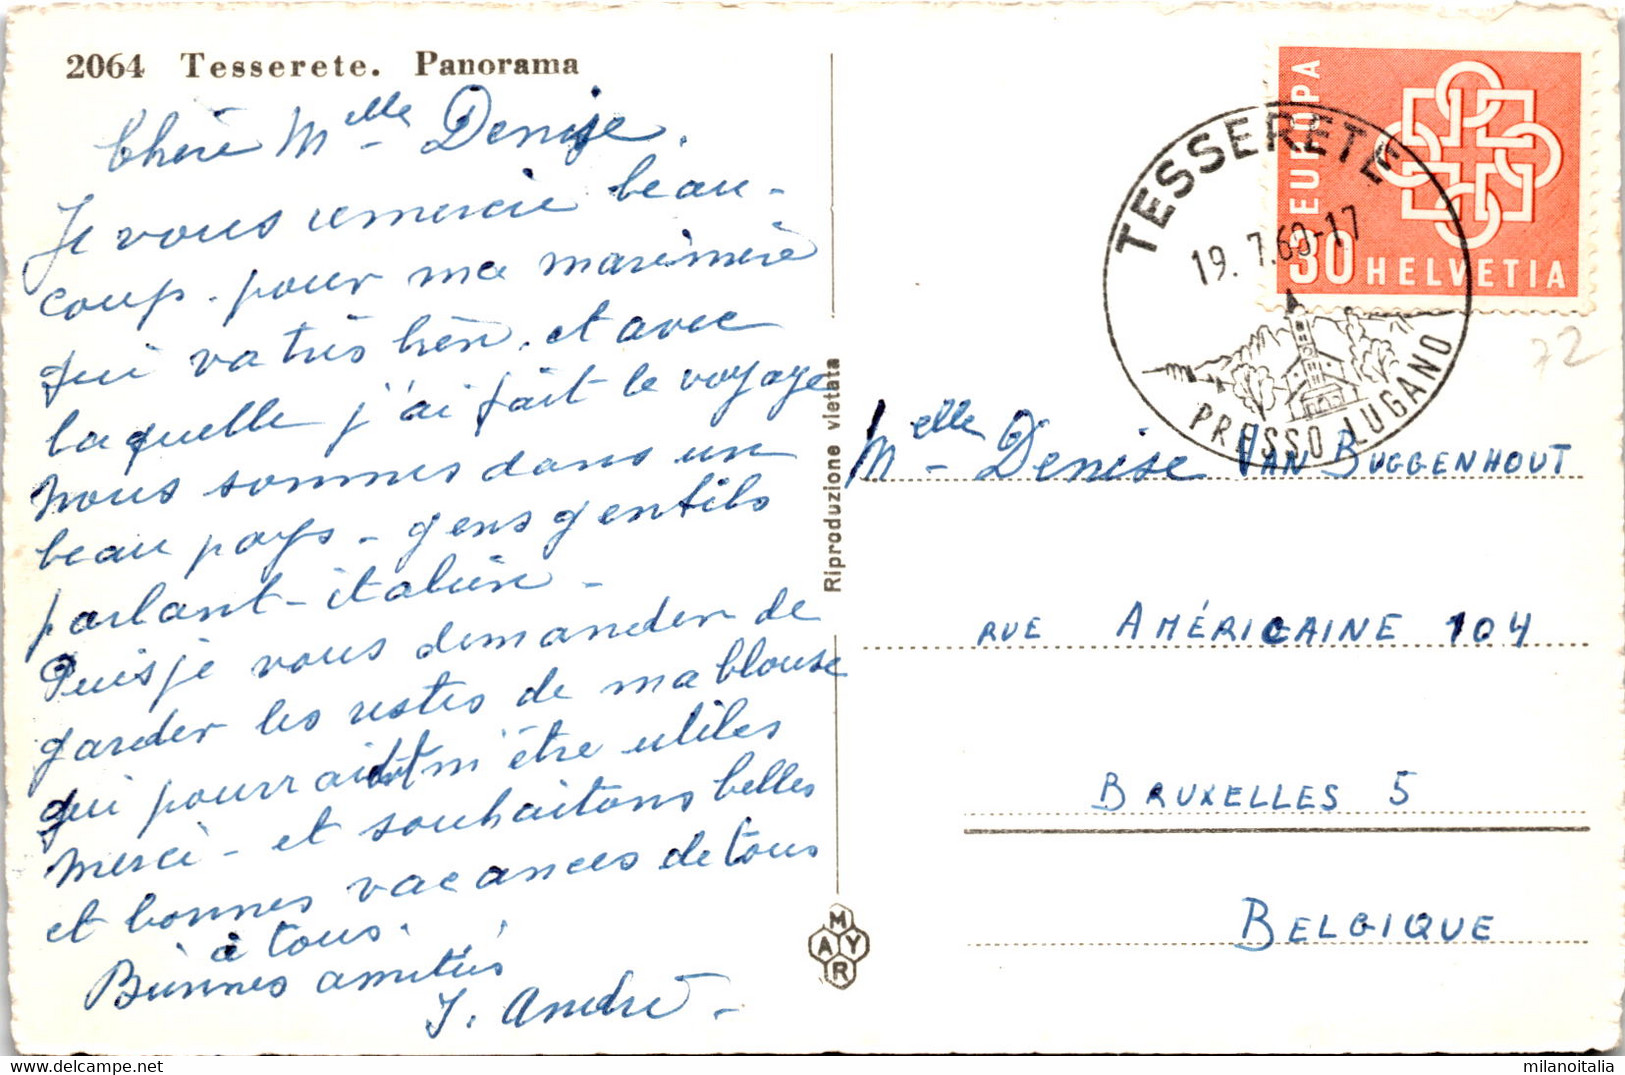 2064 Tesserete. Panorama
Chère Melle Denise.
Je vous remercie beau-
coup. pour ma marimère
qui va très bien. et avec
laquelle j'ai fait le voyage
nous sommes dans un
beau pays - gens gentils
parlant - italien -
Puis je vous demander de
garder les restes de ma blouse
qui pourraient m'être utiles
merci - et souhaitons belles
et bonnes vacances de tous
à tous.
Bonnes amitiés
J. André -
Riproduzione vietata
MAYR
EUROPA
30 HELVETIA
TESSERETE
19.7.60-17
PRESSO LUGANO
72
Melle - Denise VAN BUGGENHOUT
RUE AMÉRICAINE 104
BRUXELLES 5
BELGIQUE
https://www.delcampe.net
milanoitalia